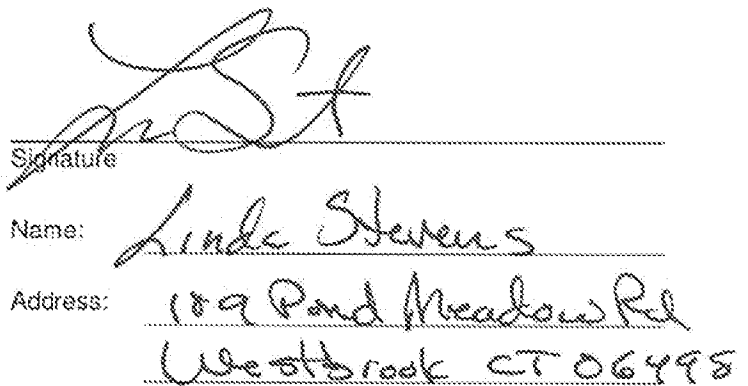 Signature
Name: Linda Stevens
Address: 189 Pond Meadow Rd
Westbrook CT 06498